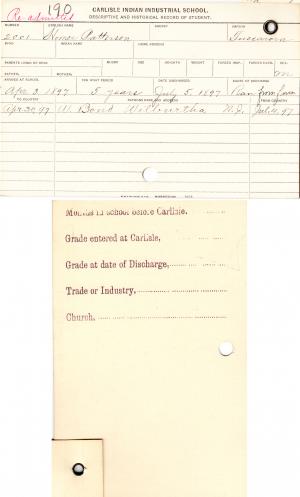 Re admitted 190
CARLISLE INDIAN INDUSTRIAL SCHOOL.
DESCRIPTIVE AND HISTORICAL RECORD OF STUDENT.
NUMBER ENGLISH NAME AGENCY NATION
2001 Homer Patterson Tuscarora
BAND INDIAN NAME HOME ADDRESS
PARENTS LIVING OR DEAD BLOOD AGE HEIGHT WEIGHT FORCED INSP. FORCED EXPR. SEX
FATHER, MOTHER, M
ARRIVED AT SCHOOL FOR WHAT PERIOD DATE DISCHARGED CAUSE OF DISCHARGE
Apr 3, 1897 5 years July 5, 1897 Ran from farm
TO COUNTRY PATRONS NAME AND ADDRESS FROM COUNTRY
Apr. 30, 97 W. Bond Wilburtha N.J. July 4, 97
Months in school before Carlisle,
Grade entered at Carlisle,
Grade at date of Discharge,
Trade or Industry,
Church,